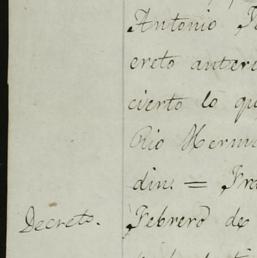 Antonio
ereto anter
cierto lo qu
Rio Herm
din: = Fra
Decreto. Febrero de